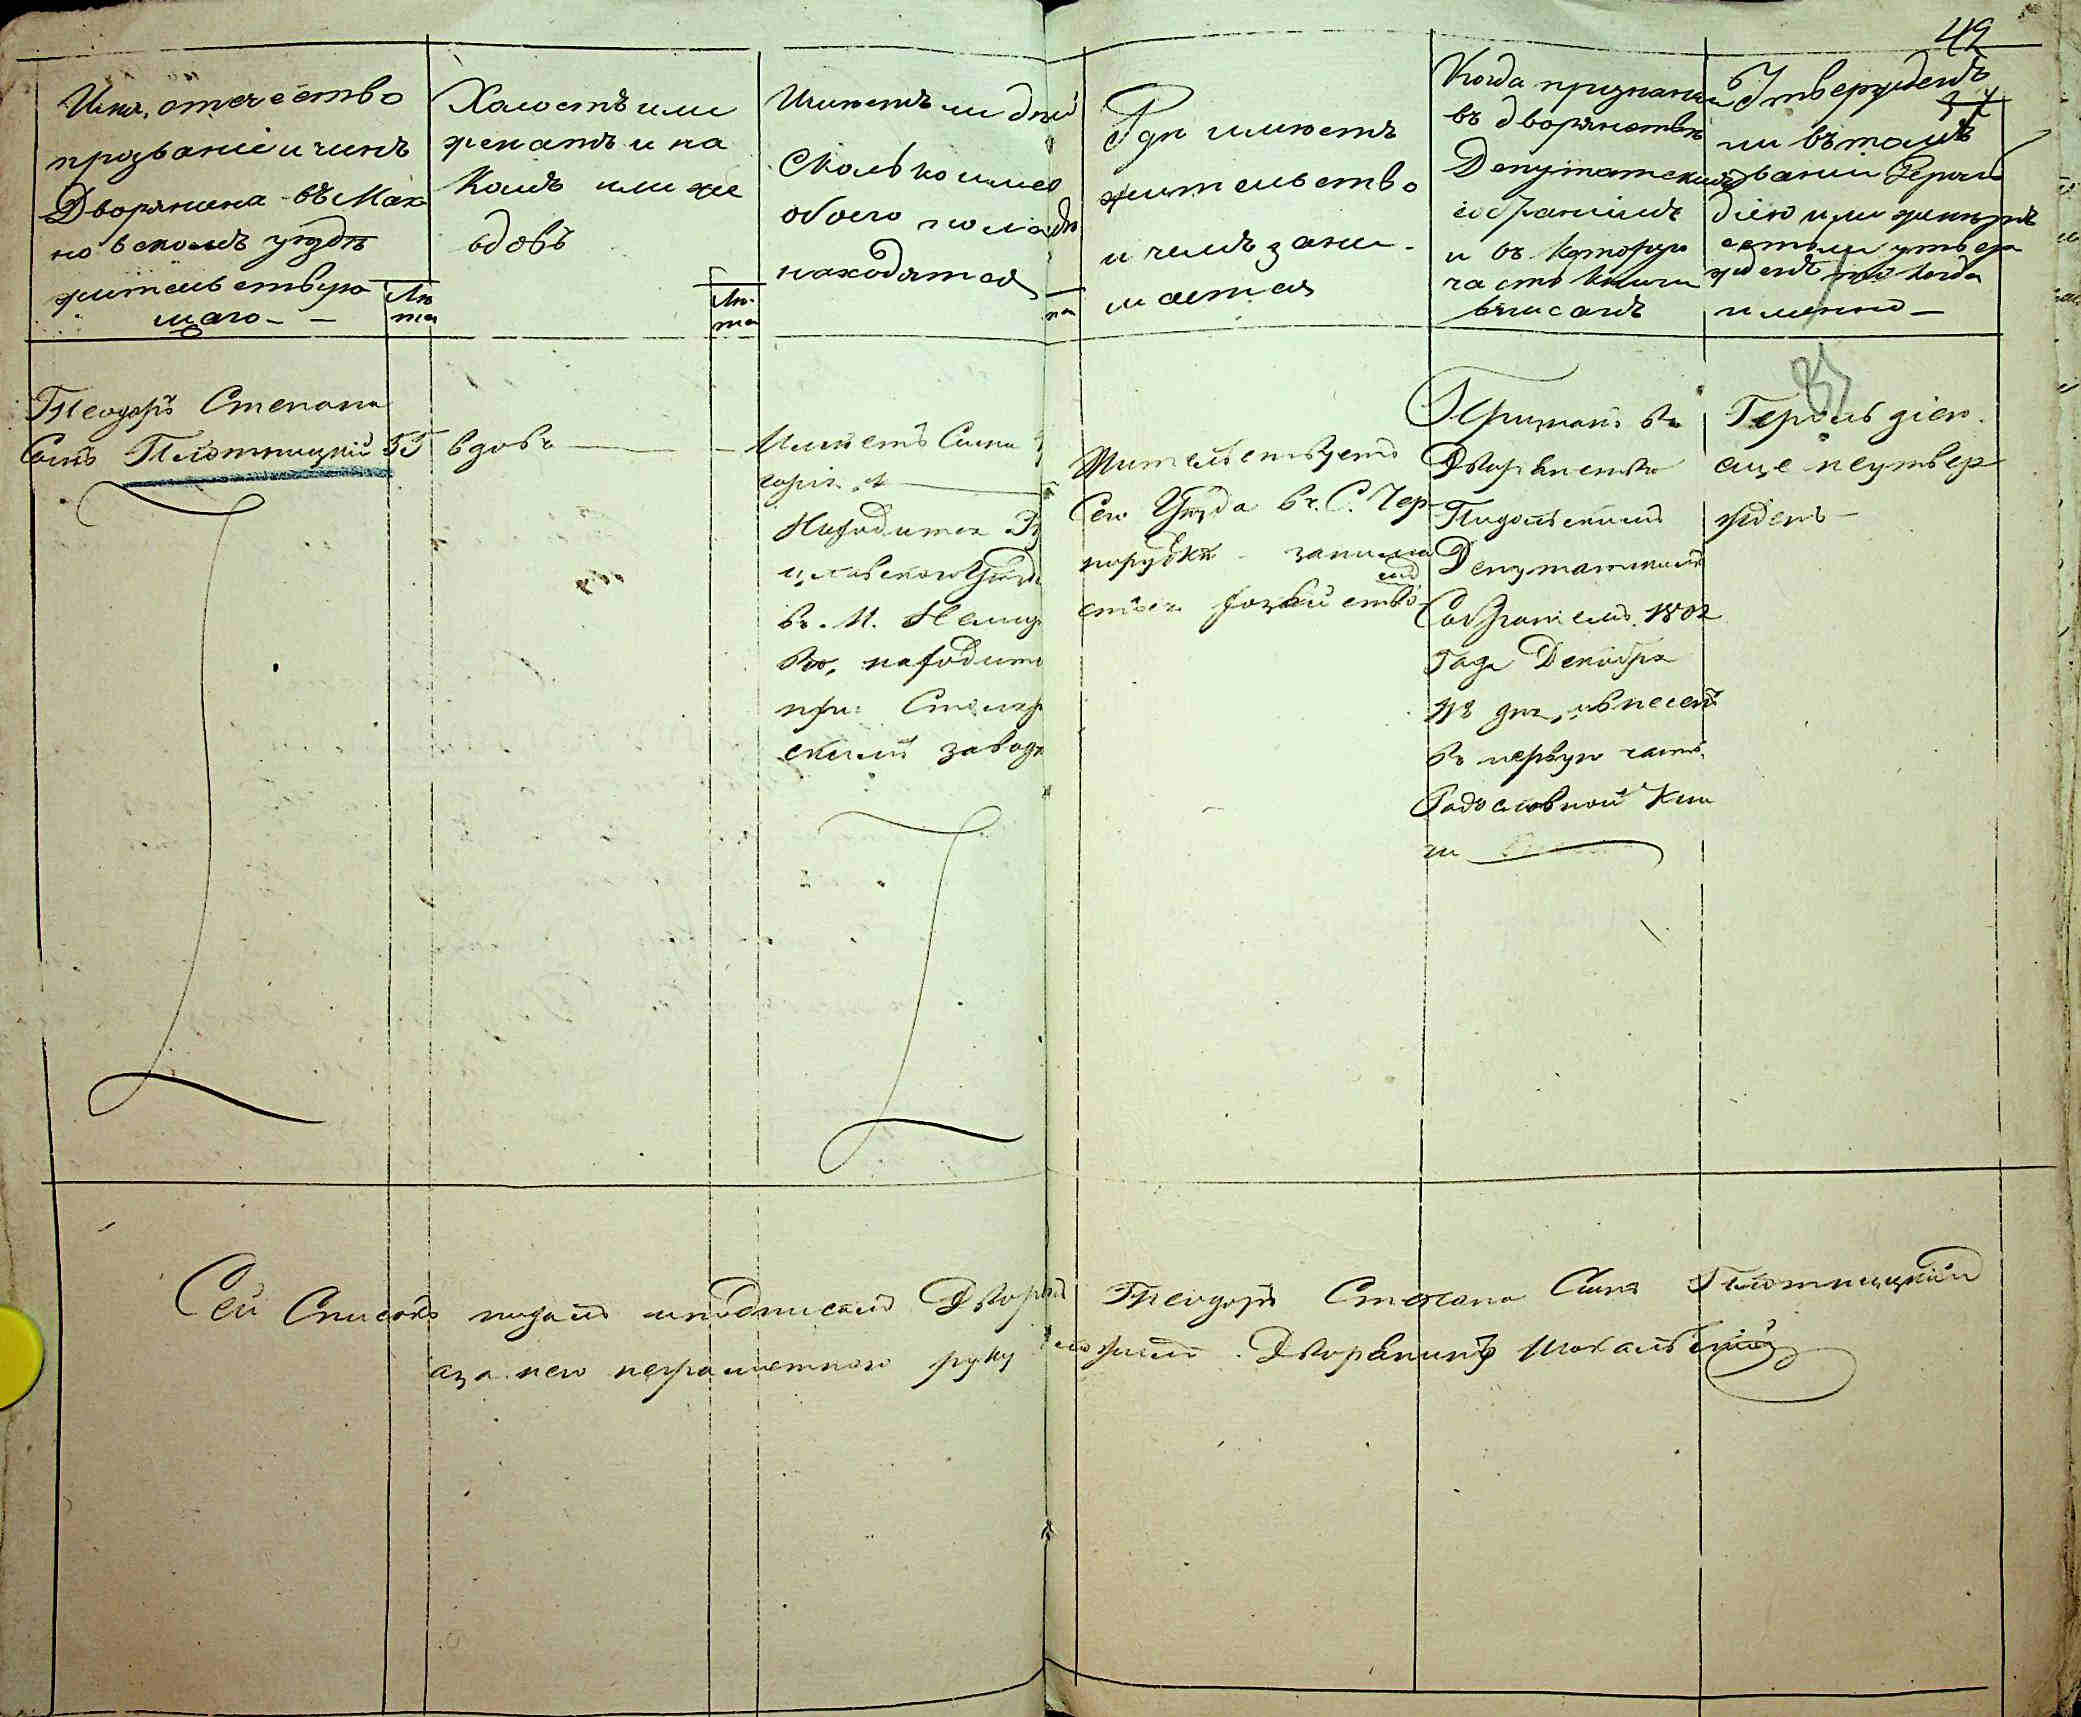 49
Имя, отечество
прозваніе и чинъ
Дворянина въ Мах
новскомъ уѣздѣ
жительствую
щаго
Лѣ
та
Холостъ или
женатъ и на
комъ или же
вдовъ
Лѣ
та
Имѣетъ ли дѣтей
сколько имен
обоего пола гдѣ
находятся
Гдѣ имѣетъ
жительство
и чемъ зани
мается
Когда признанъ
въ дворянствѣ
Депутатскимъ
собраніемъ
и въ которую
часть книги
вписанъ
Утвержденъ
ли въ томъ
званіи Герол
діею или
естли утвер
жденъ то когда
именно
Теодоръ Степана
Сынъ Плотницкій
55
вдовъ
Имѣетъ Сына
Находится
въ М. Немир
въ, находит
при Столяр
скимъ завод
Жительствуетъ
Сего Уѣзда въ С. Чер
норудкѣ занима
ется
Признанъ въ
Дворянствѣ
Подольскимъ
Депутатскимъ
Собраніемъ 1802
Года Декабря
18 дня, и внесенъ
въ первую часть
Родословной Кни
ги
Герольдіею
еще неутвер
жденъ
Сей Списокъ подалъ и подписалъ Дворян Теодоръ Степана Сынъ Плотницкій
а за него неграмотного руку Дворянинъ